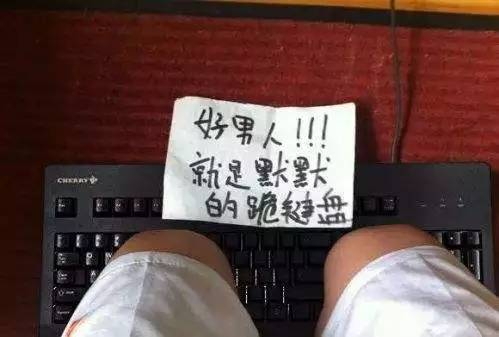 好男人!!!
就是默默
的跪键盘
CHERRY